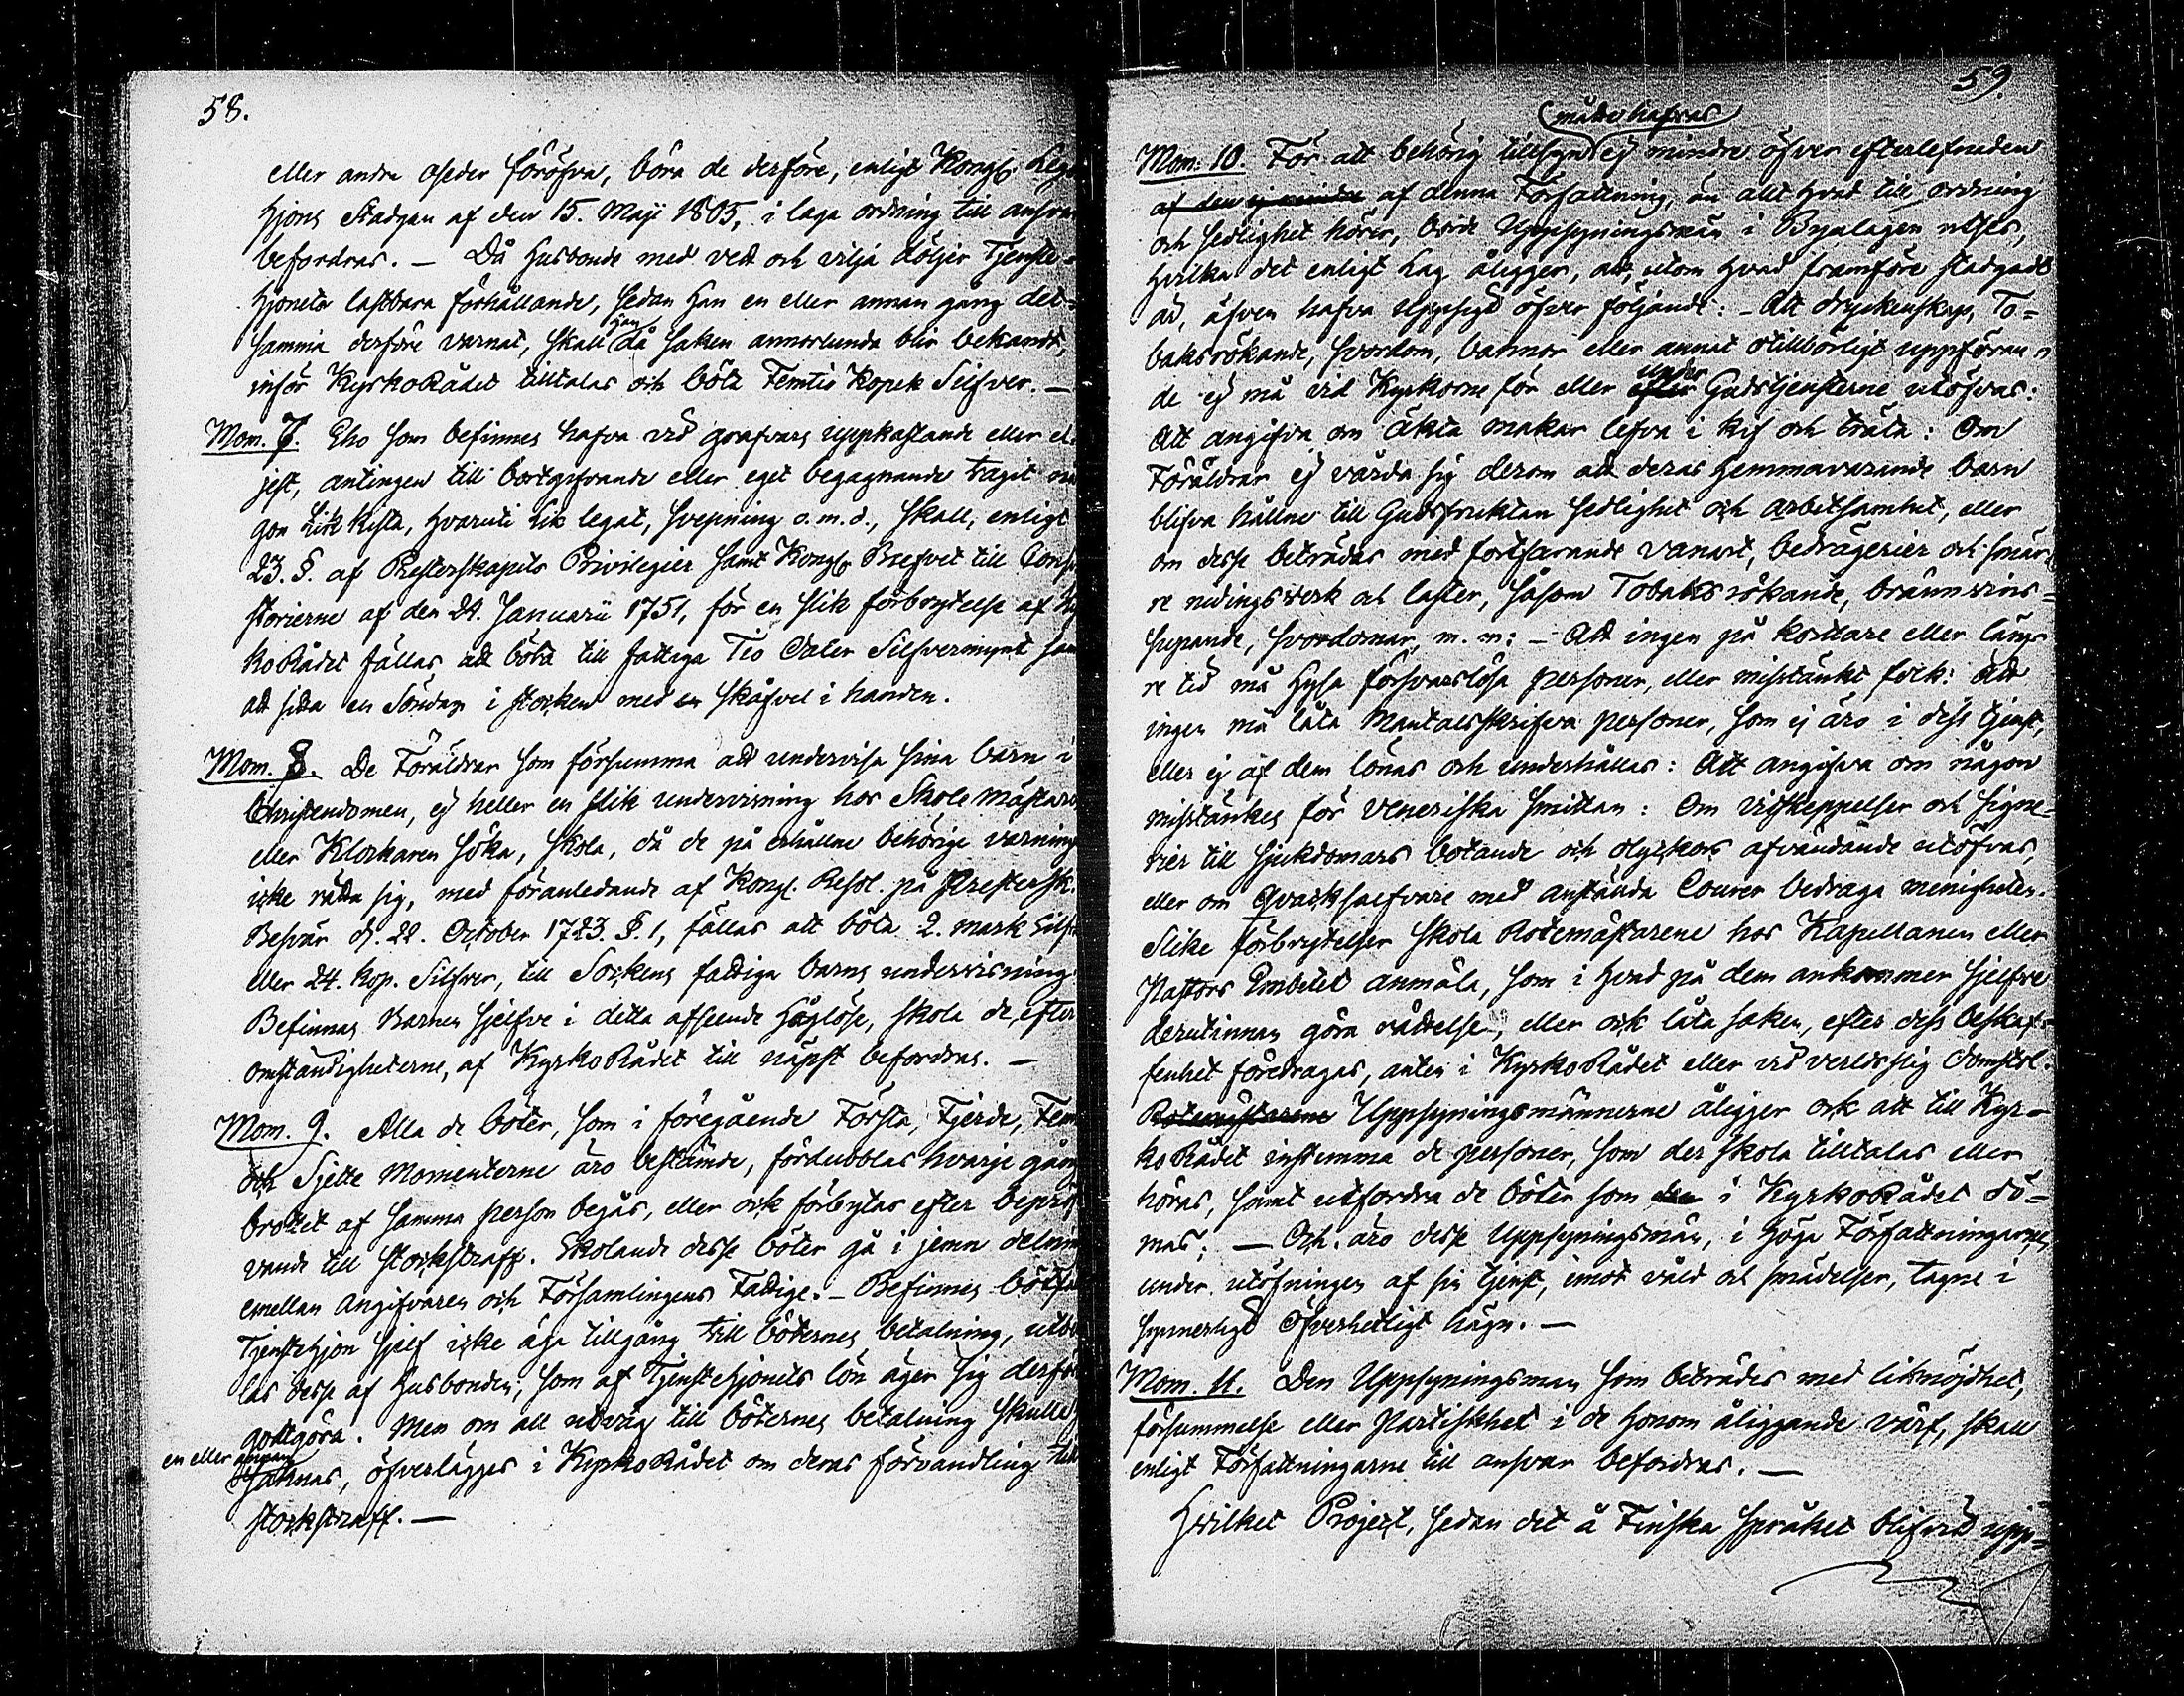 58.
eller andra oseder föröfva, böra de derföre, enligt Kongl. Lego
Hjons Stadgan af den 15. Maji 1805, i laga ordning till ansvar
befordras. — Då Husbonde med vett och vilja döljer Tjenste-
Hjonets lastbara förhållande, sedan Han en eller annan gång det-
Han
samma derföre varnat, skall då saken annorlunda blir bekandt,
inför KyrkoRådet tilltalas och böta Femtio Kopek Silfver. —
Mom. 7. Eho som befinnes hafva vid grafvars uppkastande eller el-
jest, antingen till bortgifvande eller eget begagnande tagit nå
gon Lik kista, Hvaruti Lik legat, svepning o.m.d., skall, enligt
23. §. af Presterskapets Privilegier samt Kongl. Brefvet till Consi
storierne af den 24. Januarii 1751, för en slik förbrytelse af Kyr
koRådet fällas att böta till fattiga Tio Daler Silfvermynt samt
att sitta en Söndag i stocken med en skåfvel i handen.
Mom. 8. De Föräldrar som försumma att undervisa sina barn i
Christendomen, ej heller en slik undervisning hos Skole Mästaren
eller Klockaren söka, skola, då de på erhållne behörige varningar
icke rätta sig, med föranledande af Kongl. Resol. på Prestersk.
Besvär d. 22. October 1723. §. 1, fällas att böta 2. mark Silfr
eller 24. kop. Silfver, till Sockens fattiga barns undervisning.
Befinnas Barnen sjelfve i detta afseende Håglöse, skola de, efter
omständigheterne, af KyrkoRådet till näpst befordras. —
Mom. 9. Alla de böter, som i föregående Första, Fjerde, Fem
och Sjette Momenterne äro bestämde, fördubblas hvarje gång
brottet af samma person begås, eller ock förbytas efter bepröf
vande till stockstraff. Skolande desse böter gå i jemn delning
emellan Angifvaren och Församlingens Fattige. — Befinnes bötfäld
Tjenstehjon sjelf icke äga tillgång till böternes betalning, utbeta
las desse af Husbonden, som af TjensteHjonets lön äger sig derför
godtgöra. Men om all utväg till böternes betalning skulle
en eller annan
saknas, öfverlägges i KyrkoRådet om deras förvandling till
stockstraff. —
59.
måtte hafvas
Mom. 10. För att behörig tillsyn ej mindre öfver efterlefnaden
af den ej mindre af denna Författning, än allt hvad till ordning
och sedlighet hörer, borde Uppsyningsmän i Byalagen utses,
hvilka det enligt Lag åligger, att, utom hvad framföre stadgadt
är, äfven hafva uppsigt öfver följande: — Att dryckenskap, To-
baksrökande, svordom, bannor eller annat otillbörligt uppföran-
under
de ej må vid Kyrkorne för eller efter Gudstjensterne utöfvas:
Att angifva om äkta makar lefva i kif och träta: Om
Föräldrar ej vårda sig derom att deras Hemmavarande barn
blifva hållne till Gudsfruktan sedlighet och arbetsamhet, eller
om desse beträdas med fortfarande vanart, bedrägerier och smär-
re nidingsverk och laster, såsom Tobaksrökande, brännvins-
supande, svordomar, m. m: — Att ingen på kortare eller läng-
re tid må Hysa försvarslösa personer, eller misstänkt folk: Att
ingen må låta Mantalsskrifva personer, som ej äro i dess tjenst,
eller ej af dem lönas och underhållas: Att angifva om någon
misstänkes för Veneriska smittan: Om vidskeppelser och signe-
rier till sjukdomars botande och olyckors afvändande utöfvas,
eller om Qvacksalfvare med anstända Courer bedraga menigheten.
Slike förbrytelser skola Rotemästarene hos Kapellanen eller
Pastors Embetet anmäla, som i hvad på dem ankommer sjelfve
derutinnan göra rättelse, eller ock låta saken, efter dess beskaf-
fenhet föredragas, antin i KyrkoRådet eller vid verldslig domstol.
Rotemästarene Uppsyningsmännerne åligger ock att till Kyr-
koRådet instemma de personer, som der skola tilltalas eller
höras, samt utfordra de böter som der i KyrkoRådet dö-
mas; — Och äro desse Uppsyningsmän, i Höga Författningarne,
under utöfningen af sin tjenst, imot våld och smädelser, tagne i
synnerligt Öfverhetligt hägn. —
Mom. 11. Den Uppsyningsman som beträdes med liknöjdhet,
försummelse eller Partiskhet i de honom åliggande värf, skall
enligt Författningarne till ansvar befordras. —
Hvilket Project, sedan det å Finska Språket blifvit upp-